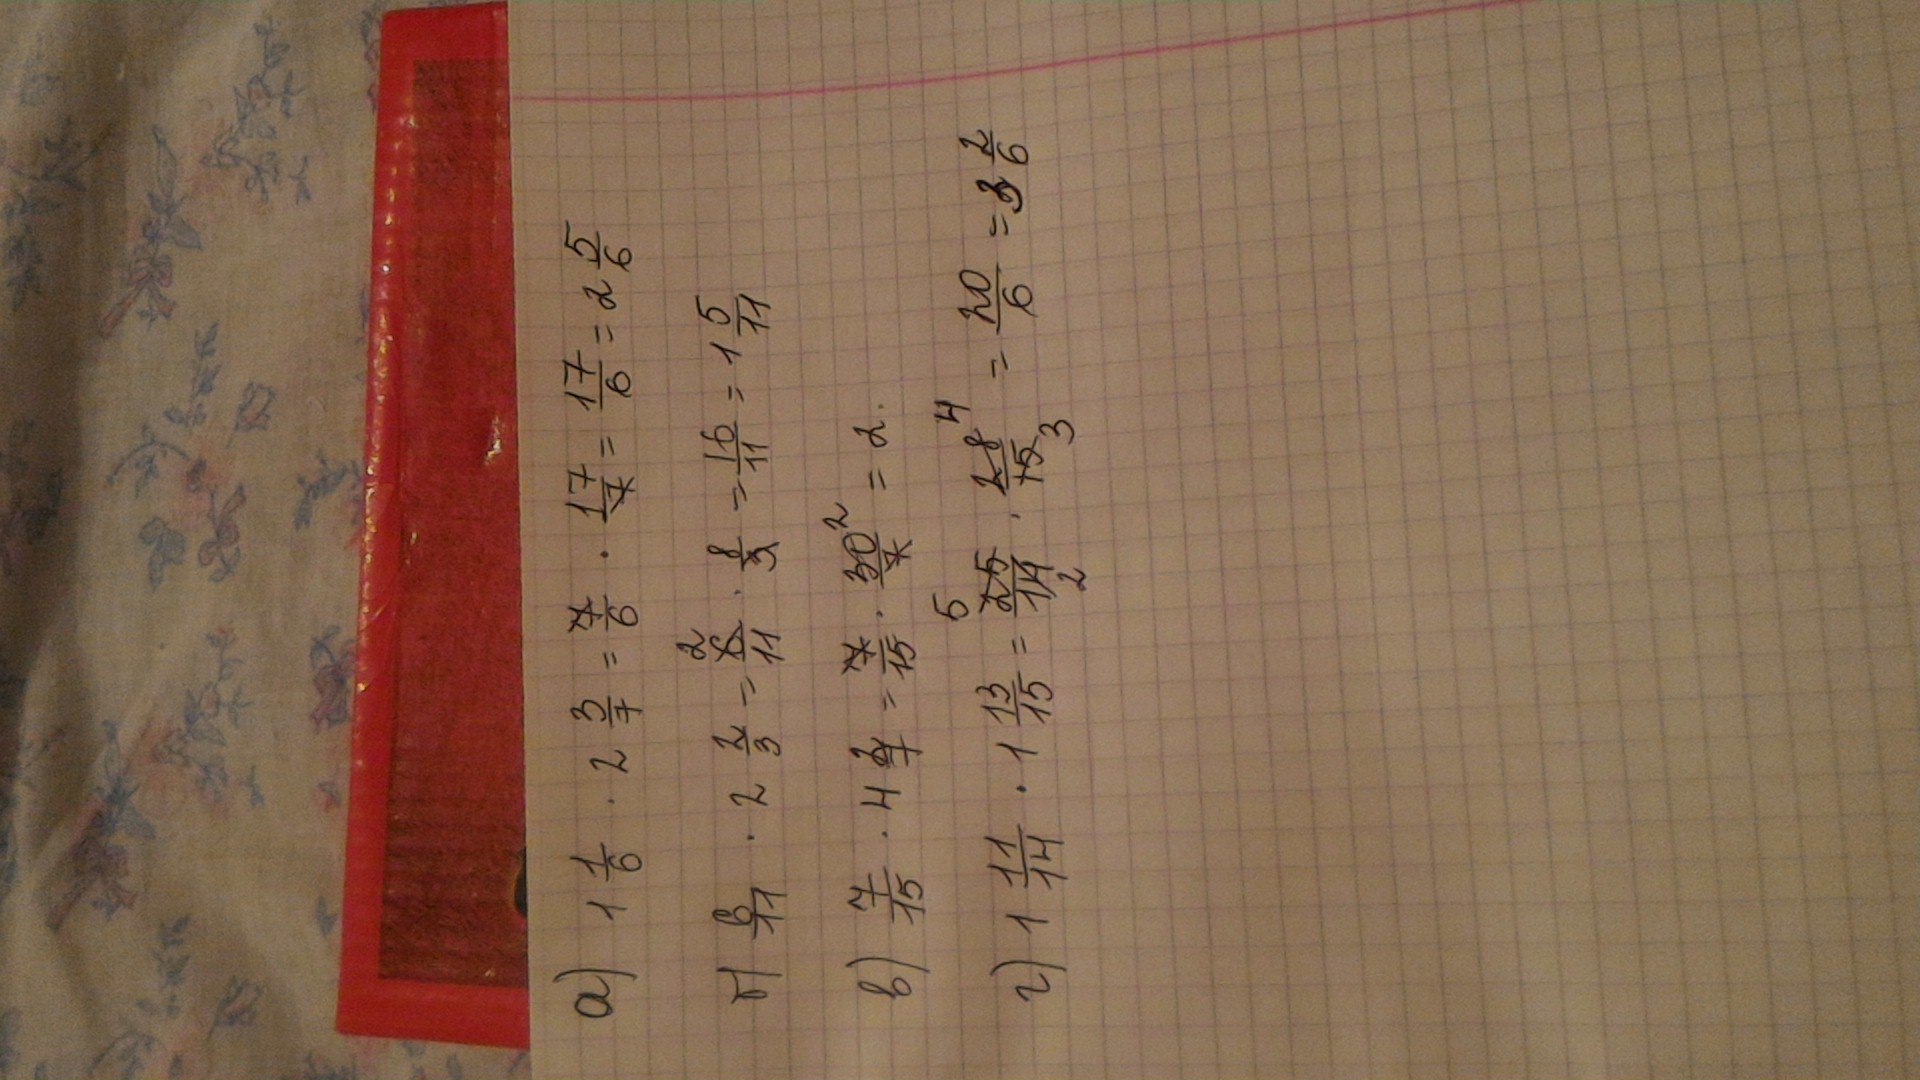 а) 1 1/6 · 2 3/7 = 7/6 · 17/7 = 17/6 = 2 5/6
б) 6/11 · 2 2/3 = 6 2/11 · 8/3 = 16/11 = 1 5/11
в) 7/15 · 4 2/7 = 7/15 · 30 2/7 = 2.
г) 1 11/14 · 1 13/15 = 25 5/14 2 · 28 4/15 3 = 20/6 = 3 2/6